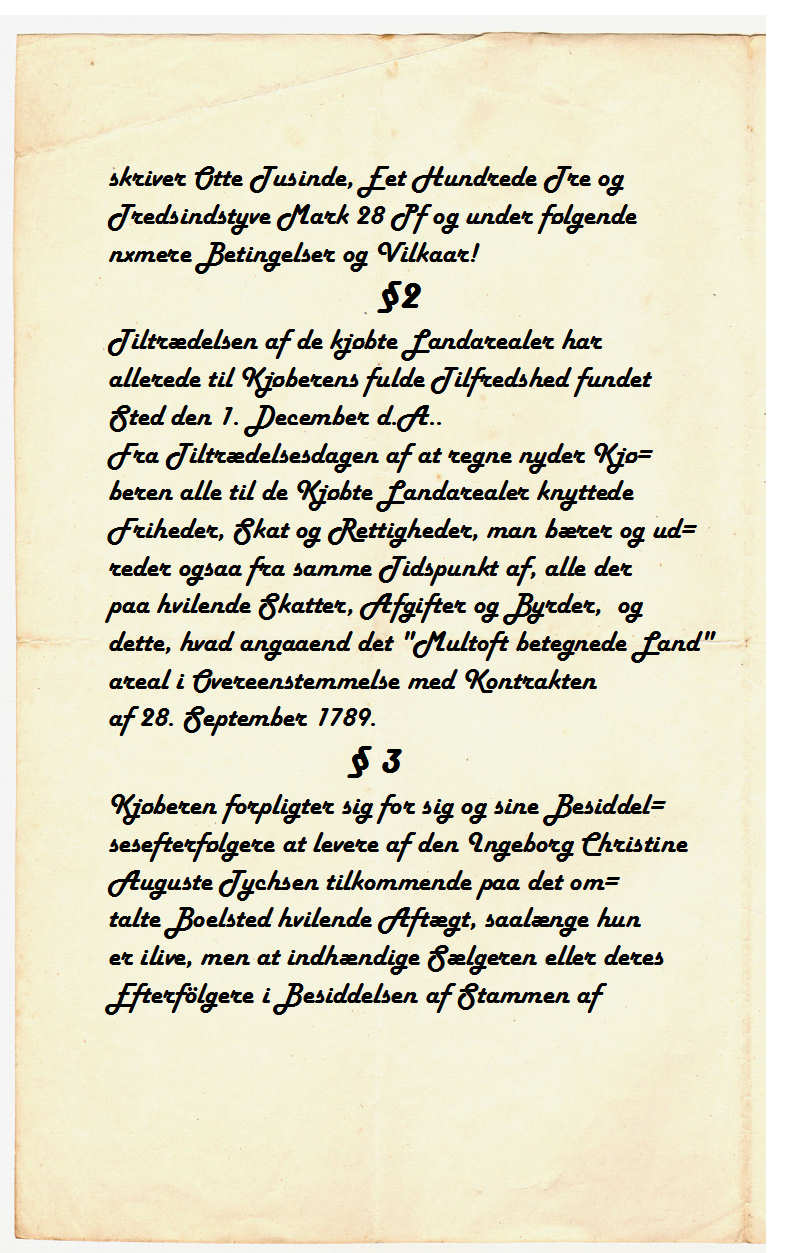 skriver Otte Tusinde, Eet Hundrede Tre og
Tredsindstyve Mark 28 Pf og under følgende
nxmere Betingelser og Vilkaar!
§2
Tiltrædelsen af de kjøbte Landarealer har
allerede til Kjøberens fulde Tilfredshed fundet
Sted den 1. December d.A..
Fra Tiltrædelsesdagen af at regne nyder Kjø=
beren alle til de Kjøbte Landarealer knyttede
Friheder, Skat og Rettigheder, man bærer og ud=
reder ogsaa fra samme Tidspunkt af, alle der
paa hvilende Skatter, Afgifter og Byrder,  og
dette, hvad angaaend det "Multoft betegnede Land"
areal i Overeenstemmelse med Kontrakten
af 28. September 1789.
§ 3
Kjøberen forpligter sig for sig og sine Besiddel=
sesefterfølgere at levere af den Ingeborg Christine
Auguste Tychsen tilkommende paa det om=
talte Boelsted hvilende Aftægt, saalænge hun
er ilive, men at indhændige Sælgeren eller deres
Efterfölgere i Besiddelsen af Stammen af